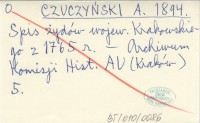 O. CZUCZYŃSKI A. 1894.
Spis żydów wojew. Krakowskie-
go z 1765 r. — Archiwum
Komisji Hist. AU (Kraków)
5.
BJ/010/0086